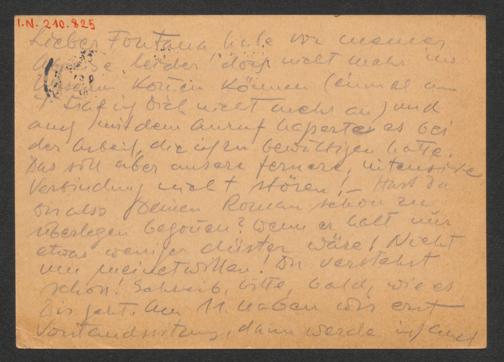 I.N. 210.825
Lieber Fontana, habe vor meiner
Abreise leider doch nicht mehr ins
kommen können (einmal am
Dich nicht mehr an) und
auch mit dem Anruf haperte es bei
der Arbeit, die ich zu bewältigen hatte.
Das soll aber unsere fernere, intensive
Verbindung nicht stören! – Hast du
also Deinen Roman schon zu
überlegen begonnen? Wenn er halt nur
etwas weniger düster wäre! Nicht
um meinetwillen! Du verstehst
schon! Schreib, bitte, bald, wie es
Dir geht. Am 11. haben wir erst
Vorstandssitzung, dann werde ich